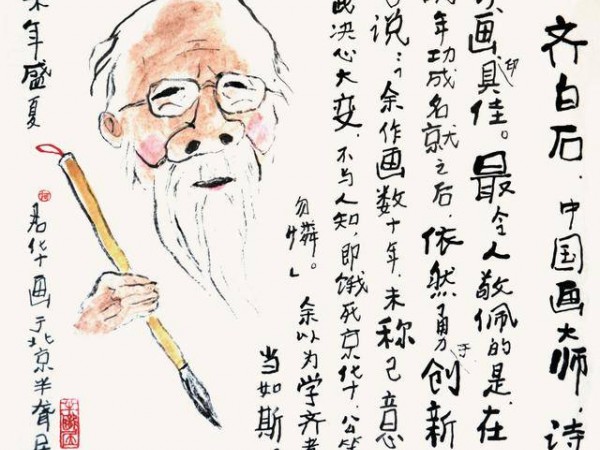 齐白石，中国画大师，诗
印画具佳。最令人敬佩的是，在
年功成名就之后，依然勇于创新
说：“余作画数十年，未称己意
决心大变，不与人知，即饿死京华，公等
勿憐」。余以为学齐者
当如斯
年盛夏
君华画于北京半聋居